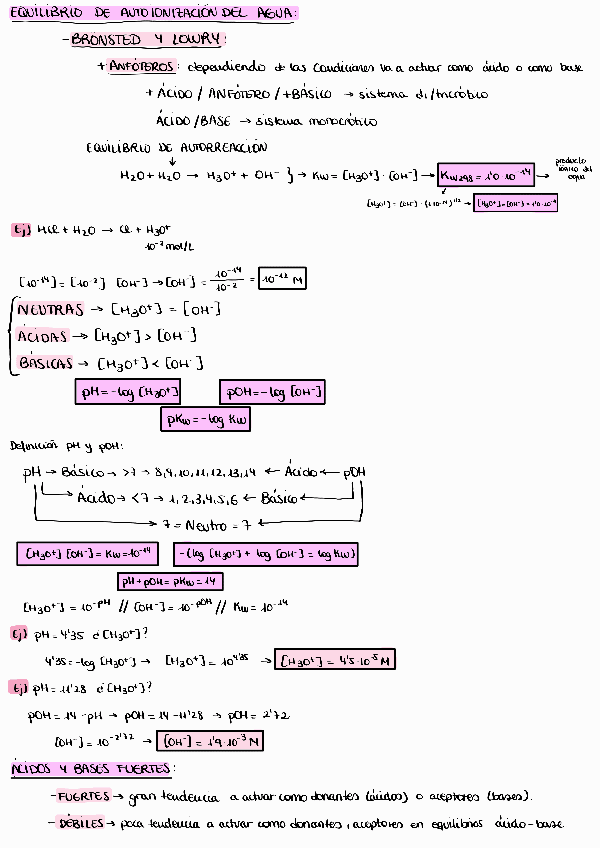 EQUILIBRIO DE AUTOIONIZACIÓN DEL AGUA:
- BRÖNSTED Y LOWRY:
+ ANFÓTEROS: dependiendo de las condiciones va a actuar como ácido o como base
+ ÁCIDO / ANFÓTERO / +BÁSICO → sistema di/tricrótico
ÁCIDO/BASE → sistema monocrótico
EQUILIBRIO DE AUTORREACCIÓN
H2O + H2O → H3O+ + OH- } → KW = [H3O+] · [OH-] → KW298 = 1'0·10-14 → producto iónico del agua
[H3O+] = [OH-] = (1·10-14)1/2 → [H3O+] = [OH-] = 1'0·10-7
Ej) HCl + H2O → Cl- + H3O+
10-2 mol/L
[10-14] = [10-2] [OH-] → [OH-] = 10-14 / 10-2 = 10-12 M
NEUTRAS → [H3O+] = [OH-]
ÁCIDAS → [H3O+] > [OH-]
BÁSICAS → [H3O+] < [OH-]
pH = -log [H3O+] pOH = -log [OH-]
pKw = -log Kw
Definición pH y pOH:
pH → Básico → >7 → 8,9,10,11,12,13,14 ← Ácido ← pOH
Ácido → <7 → 1,2,3,4,5,6 ← Básico ←
→ 7 = Neutro = 7 ←
[H3O+] [OH-] = Kw = 10-14 -(log [H3O+] + log [OH-] = log Kw)
pH + pOH = pKw = 14
[H3O+] = 10-pH // [OH-] = 10-pOH // Kw = 10-14
Ej) pH = 4'35 ¿[H3O+]?
4'35 = -log [H3O+] → [H3O+] = 104'35 → [H3O+] = 4'5·10-5 M
Ej) pH = 11'28 ¿[H3O+]?
pOH = 14 - pH → pOH = 14 - 11'28 → pOH = 2'72
[OH-] = 10-2'72 → [OH-] = 1'9·10-3 M
ÁCIDOS Y BASES FUERTES:
- FUERTES → gran tendencia a actuar como donantes (ácidos) o aceptores (bases).
- DÉBILES → poca tendencia a actuar como donantes, aceptores en equilibrios ácido-base.